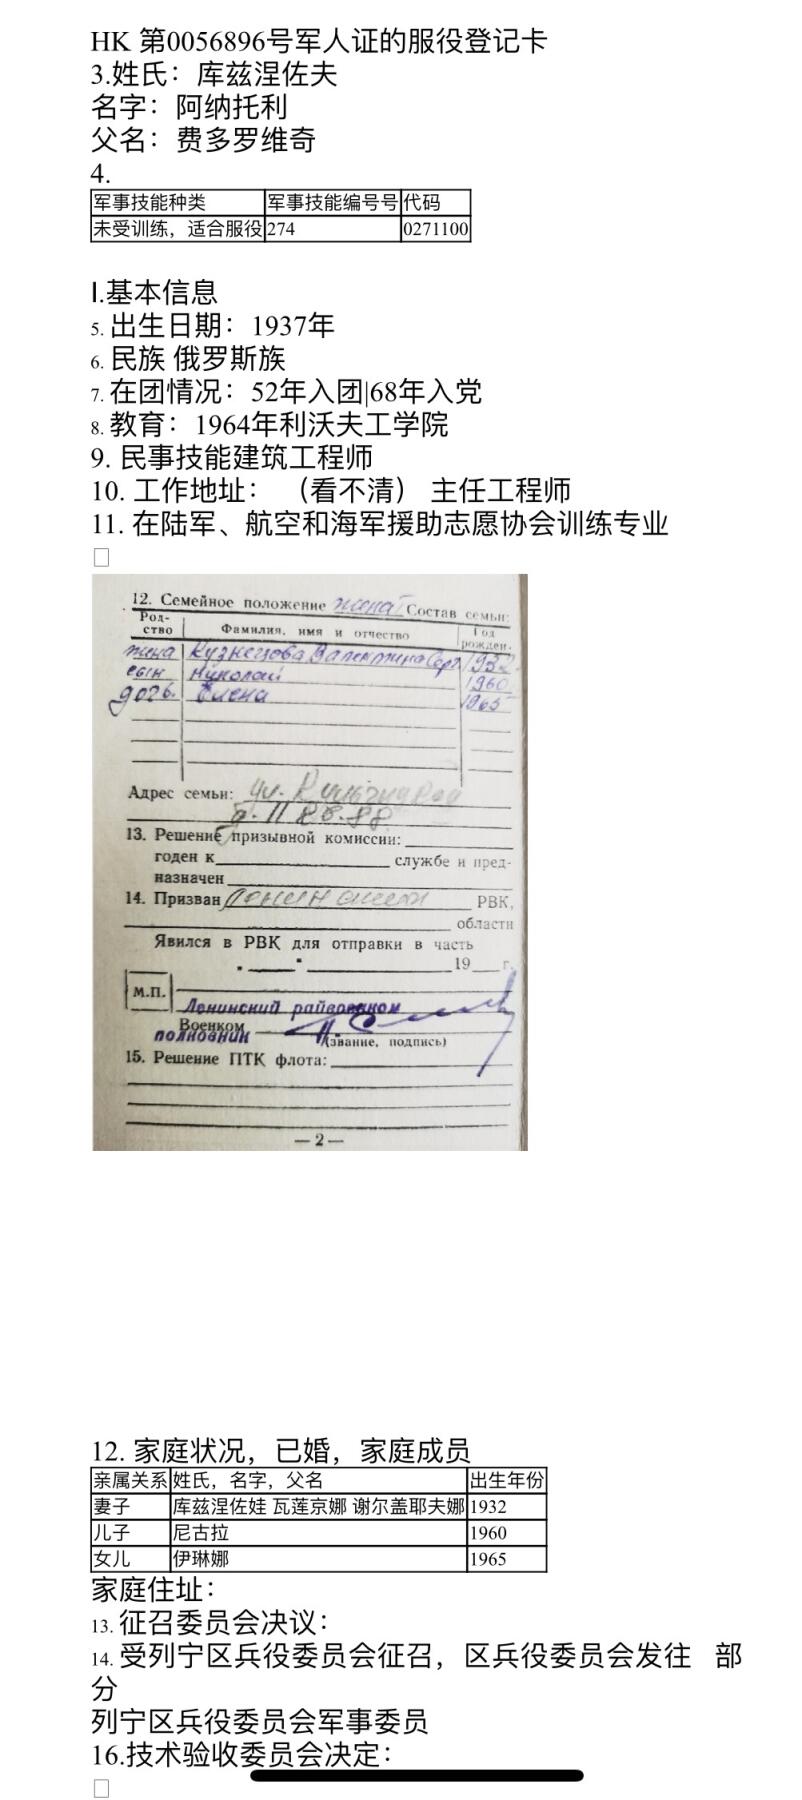 HK 第0056896号军人证的服役登记卡
3.姓氏：库兹涅佐夫
名字：阿纳托利
父名：费多罗维奇
4.
军事技能种类 军事技能编号号 代码
未受训练，适合服役 274 0271100
Ⅰ.基本信息
5. 出生日期：1937年
6. 民族 俄罗斯族
7. 在团情况：52年入团|68年入党
8. 教育：1964年利沃夫工学院
9. 民事技能建筑工程师
10. 工作地址： （看不清） 主任工程师
11. 在陆军、航空和海军援助志愿协会训练专业
12. Семейное положение женат Состав семьи:
Род-ство Фамилия, имя и отчество Год рожден.
жена Кузнецова Валентина Серг. 1932
сын Николай 1960
дочь Елена 1965
Адрес семьи: ул.
д. 11 кв. 88
13. Решение призывной комиссии:
годен к службе и пред-
назначен
14. Призван РВК,
области
Явился в РВК для отправки в часть
" " 19 г.
М.П.
Ленинский райвоенком
Военком
полковник (звание, подпись)
15. Решение ПТК флота:
— 2 —
12. 家庭状况，已婚，家庭成员
亲属关系 姓氏，名字，父名 出生年份
妻子 库兹涅佐娃 瓦莲京娜 谢尔盖耶夫娜 1932
儿子 尼古拉 1960
女儿 伊琳娜 1965
家庭住址：
13. 征召委员会决议：
14. 受列宁区兵役委员会征召，区兵役委员会发往 部
分
列宁区兵役委员会军事委员
16.技术验收委员会决定：